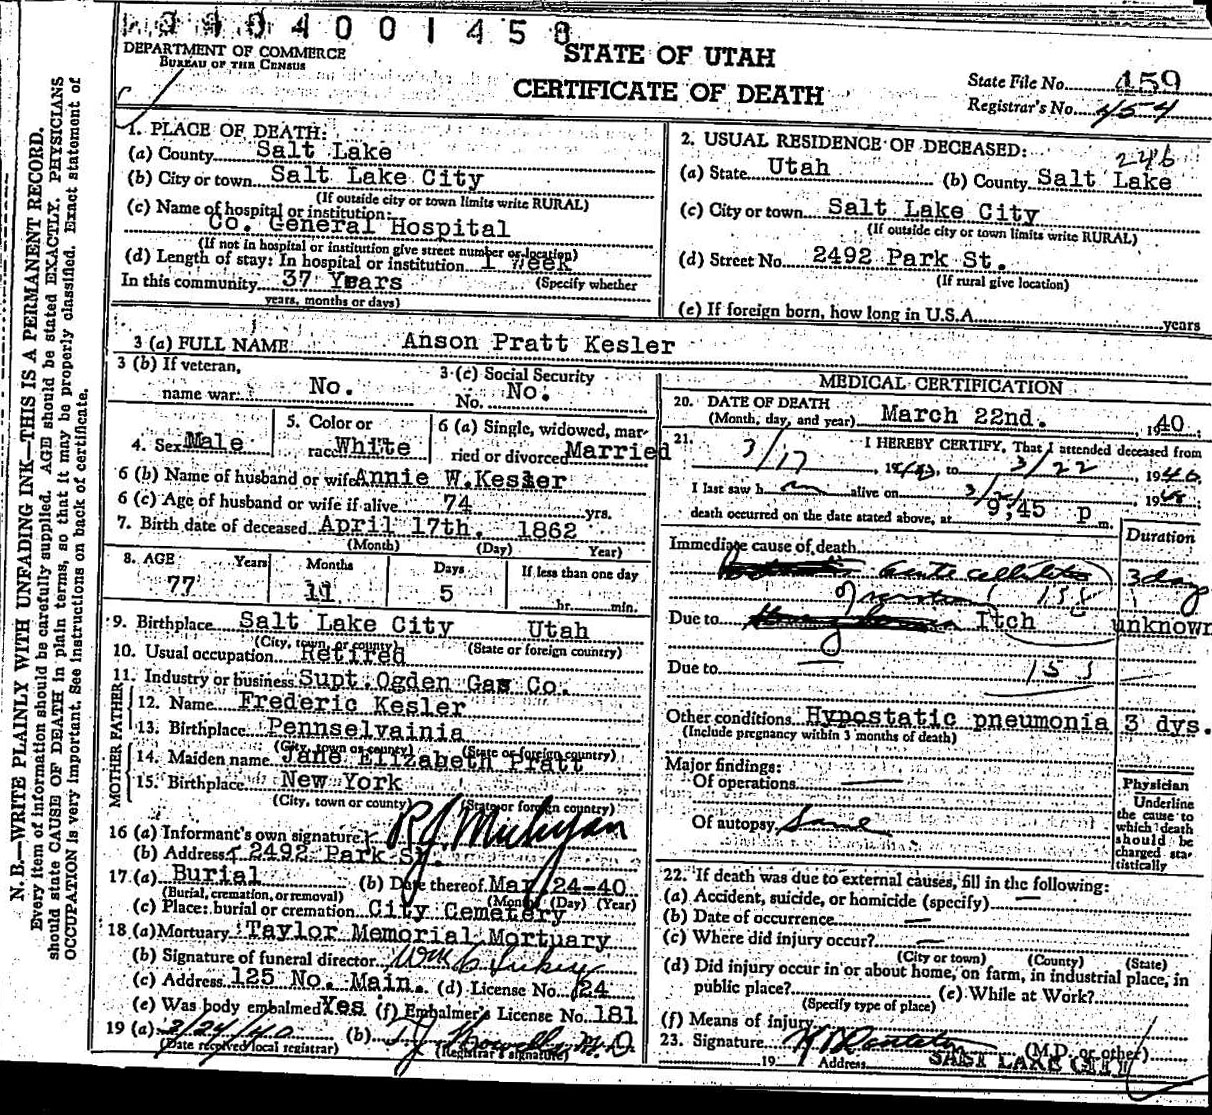 3904001458
DEPARTMENT OF COMMERCE
BUREAU OF THE CENSUS
STATE OF UTAH
CERTIFICATE OF DEATH
State File No. 459
Registrar's No. 454
N. B.—WRITE PLAINLY WITH UNFADING INK—THIS IS A PERMANENT RECORD.
Every item of information should be carefully supplied. AGE should be stated EXACTLY. PHYSICIANS
should state CAUSE OF DEATH in plain terms, so that it may be properly classified. Exact statement of
OCCUPATION is very important. See instructions on back of certificate.
1. PLACE OF DEATH:
(a) County Salt Lake
(b) City or town Salt Lake City
(If outside city or town limits write RURAL)
(c) Name of hospital or institution:
Co. General Hospital
(If not in hospital or institution give street number or location)
(d) Length of stay: In hospital or institution 1 Week
In this community 37 Years (Specify whether
years, months or days)
2. USUAL RESIDENCE OF DECEASED:
246
(a) State Utah (b) County Salt Lake
(c) City or town Salt Lake City
(If outside city or town limits write RURAL)
(d) Street No. 2492 Park St.
(If rural give location)
(e) If foreign born, how long in U.S.A. years
3 (a) FULL NAME Anson Pratt Kesler
3 (b) If veteran,
name war: No.
3 (c) Social Security
No. No.
4. Sex Male
5. Color or
race White
6 (a) Single, widowed, mar-
ried or divorced Married
6 (b) Name of husband or wife Annie W. Kesler
6 (c) Age of husband or wife if alive 74 yrs.
7. Birth date of deceased April 17th. 1862
(Month) (Day) Year)
8. AGE Years Months Days If less than one day
77 11 5 hr. min.
9. Birthplace Salt Lake City Utah
(City, town or county) (State or foreign country)
10. Usual occupation Retired
11. Industry or business Supt. Ogden Gas Co.
FATHER
12. Name Frederic Kesler
13. Birthplace Pennselvainia
(City, town or county) (State or foreign country)
MOTHER
14. Maiden name Jane Elizabeth Pratt
15. Birthplace New York
(City, town or county) (State or foreign country)
16 (a) Informant's own signature
(b) Address 2492 Park St.
17. (a) Burial (b) Date thereof Mar/24-40
(Burial, cremation, or removal) (Month) (Day) (Year)
(c) Place: burial or cremation City Cemetery
18 (a) Mortuary Taylor Memorial Mortuary
(b) Signature of funeral director
(c) Address 125 No. Main. (d) License No. 124
(e) Was body embalmed Yes (f) Embalmer's License No. 181
19 (a) 3/24/40 (b) M.D.
(Date received local registrar) (Registrar's signature)
MEDICAL CERTIFICATION
20. DATE OF DEATH
(Month, day, and year) March 22nd. 1940.
21. I HEREBY CERTIFY, That I attended deceased from
3/17, 19 to 3/22 1940.
I last saw h alive on 3/ 19
death occurred on the date stated above, at 9:45 P m.
Duration
Immediate cause of death
Acute cellulitis 3 days
of 138
Due to Itch unknown
Due to 153
Other conditions Hypostatic pneumonia 3 dys.
(Include pregnancy within 3 months of death)
Major findings:
Of operations —
Of autopsy Same
Physician
Underline
the cause to
which death
should be
charged sta-
tistically
22. If death was due to external causes, fill in the following:
(a) Accident, suicide, or homicide (specify) —
(b) Date of occurrence —
(c) Where did injury occur? —
(City or town) (County) (State)
(d) Did injury occur in or about home, on farm, in industrial place, in
public place? (e) While at Work?
(Specify type of place)
(f) Means of injury
23. Signature (M.D. or other)
19 Address SALT LAKE CITY